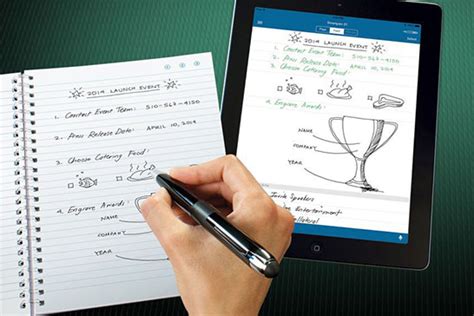 2014 LAUNCH EVENT
1. Contact Event Team: 510-567-4150
2. Press Release Date: APRIL 10, 2014
3. Choose Catering Food:
4. Engrave Awards:
NAME
COMPANY
YEAR
2014 LAUNCH EVENT
1. Contact Event Team: 510-567-4150
2. Press Release Date: APRIL 10, 2014
3. Choose Catering Food:
4. Engrave Awards:
NAME
COMPANY
YEAR
Invite Speakers
Entertainment